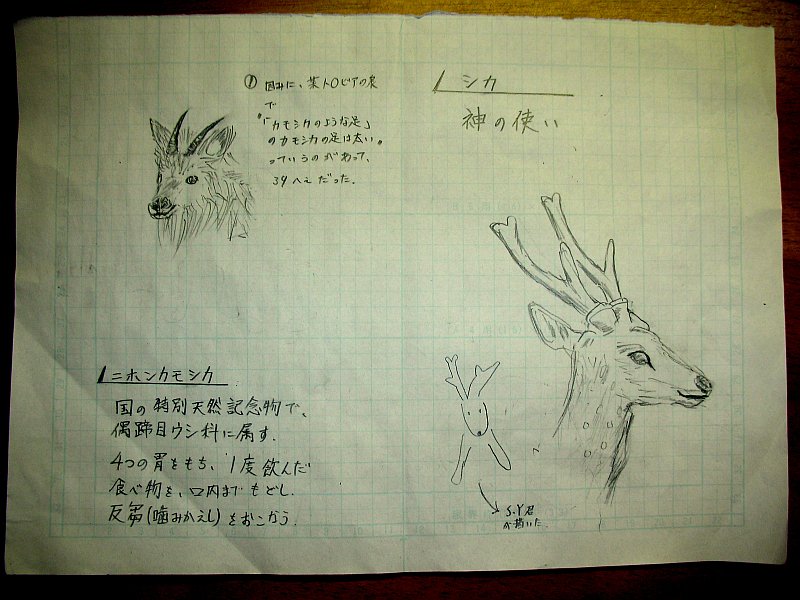 ① 因みに、某トロビアの泉
で
"「カモシカのような足」
のカモシカの足は太い"
っていうのがあって、
39へぇだった.
ニホンカモシカ
国の特別天然記念物で、
偶蹄目ウシ科に属す.
4つの胃をもち、1度飲んだ
食べ物を、口内までもどし.
反芻(噛みかえし)をおこなう.
シカ
神の使い
S.Y君
が描いた.